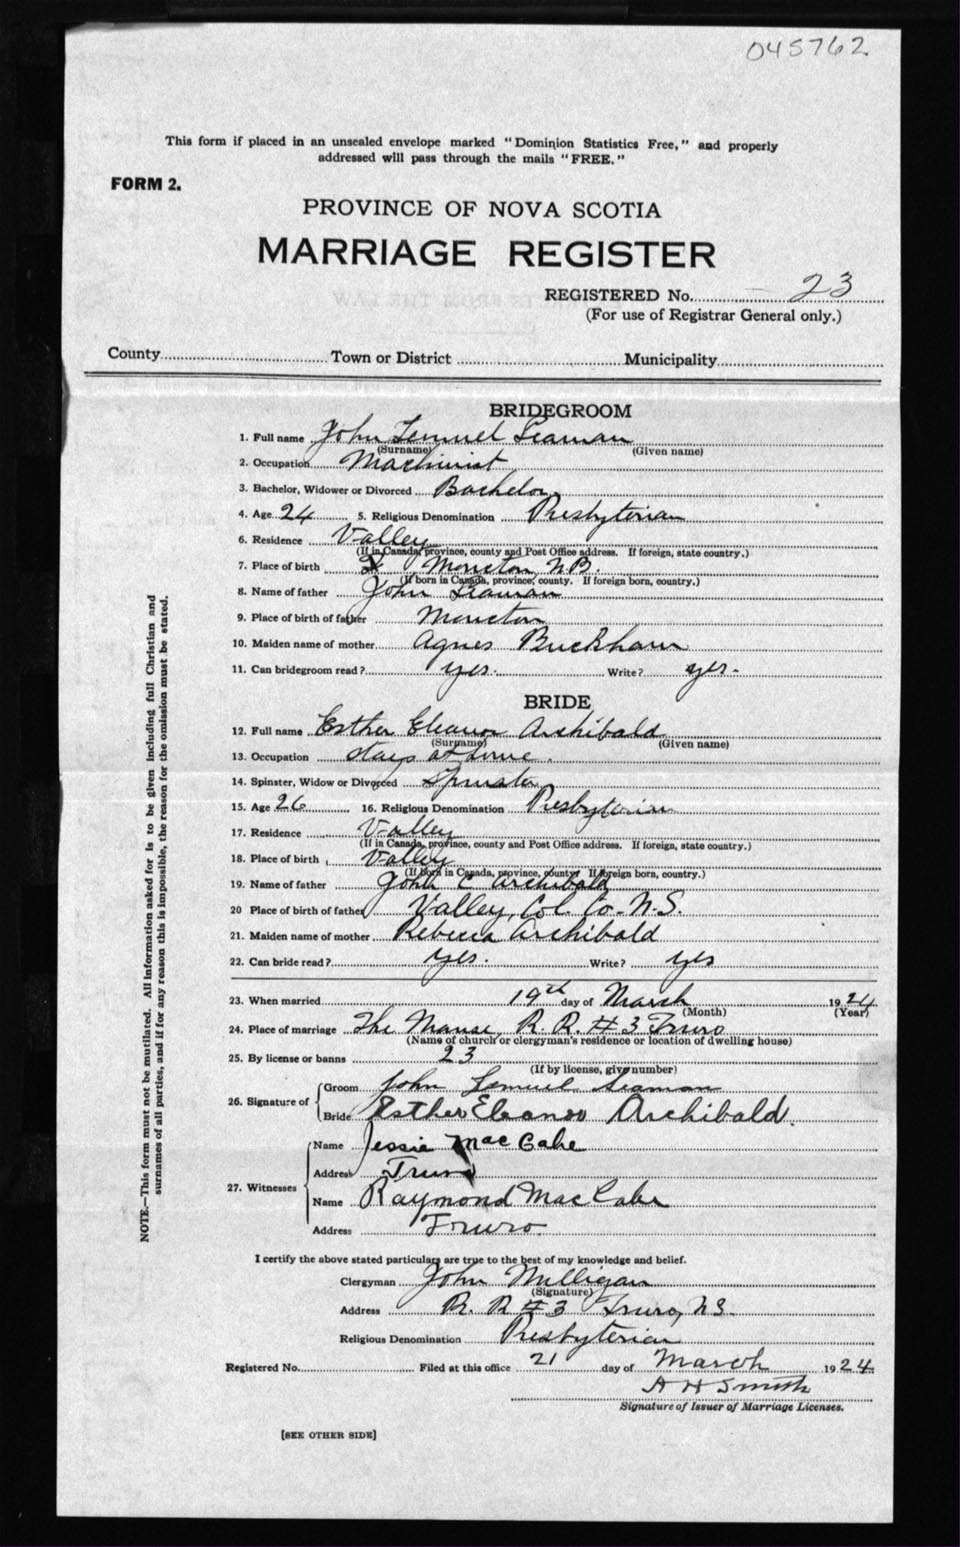 045762
This form if placed in an unsealed envelope marked "Dominion Statistics Free," and properly
addressed will pass through the mails "FREE."
FORM 2.
PROVINCE OF NOVA SCOTIA
MARRIAGE REGISTER
REGISTERED No. 23
(For use of Registrar General only.)
County Town or District Municipality
BRIDEGROOM
1. Full name John Lemuel Seaman
(Surname) (Given name)
2. Occupation Machinist
3. Bachelor, Widower or Divorced Bachelor
4. Age 24 5. Religious Denomination Presbyterian
6. Residence Valley
(If in Canada, province, county and Post Office address. If foreign, state country.)
7. Place of birth Moncton, N.B.
(If born in Canada, province, county. If foreign born, country.)
8. Name of father John Seaman
9. Place of birth of father Moncton
10. Maiden name of mother Agnes Buckham
11. Can bridegroom read? yes. Write? yes-
BRIDE
12. Full name Esther Eleanor Archibald
(Surname) (Given name)
13. Occupation stays at home.
14. Spinster, Widow or Divorced Spinster
15. Age 26 16. Religious Denomination Presbyterian
17. Residence Valley
(If in Canada, province, county and Post Office address. If foreign, state country.)
18. Place of birth Valley
(If born in Canada, province, county If foreign born, country.)
19. Name of father John C Archibald
20 Place of birth of father Valley, Col. Co. N.S.
21. Maiden name of mother Rebecca Archibald
22. Can bride read? yes. Write? yes
23. When married 19th day of March 1924
(Month) (Year)
24. Place of marriage The Manse, R. R. # 3 Truro
(Name of church or clergyman's residence or location of dwelling house)
25. By license or banns 23
(If by license, give number)
26. Signature of Groom John Lemuel Seaman
Bride Esther Eleanor Archibald.
27. Witnesses Name Jessie MacCabe
Address Truro
Name Raymond MacCabe
Address Truro.
I certify the above stated particulars are true to the best of my knowledge and belief.
Clergyman John Milligan
(Signature)
Address R. R # 3 Truro, N.S.
Religious Denomination Presbyterian
Registered No. Filed at this office 21 day of March 1924
A H Smith
Signature of Issuer of Marriage Licenses.
[SEE OTHER SIDE]
NOTE.—This form must not be mutilated. All information asked for is to be given including full Christian and
surnames of all parties, and if for any reason this is impossible, the reason for the omission must be stated.